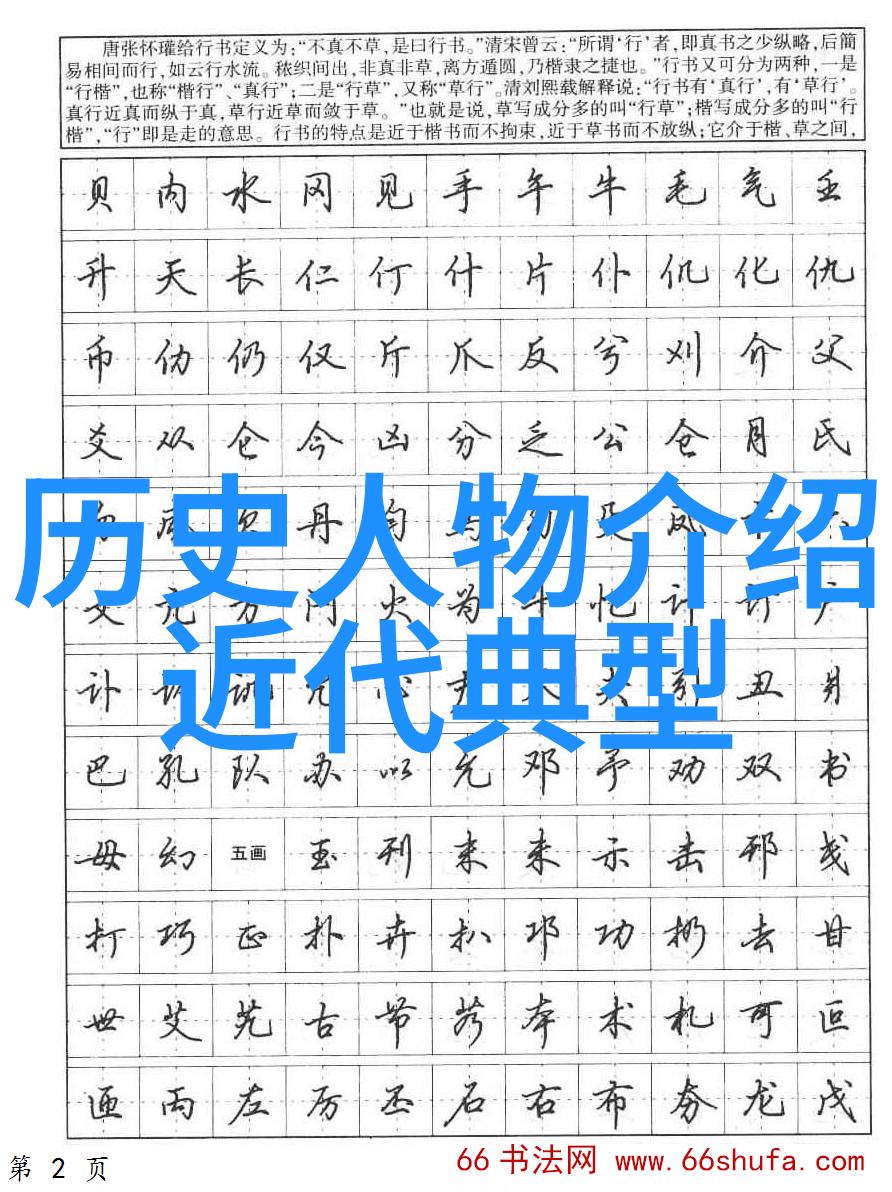 唐张怀瓘给行书定义为:“不真不草,是曰行书。”清宋曾云:“所谓‘行’者,即真书之少纵略,后简
易相间而行,如云行水流。秾织间出,非真非草,离方遁圆,乃楷隶之捷也。”行书又可分为两种,一是
“行楷”,也称“楷行”、“真行”;二是“行草”,又称“草行”。清刘熙载解释说:“行书有‘真行’,有‘草行’。
真行近真而纵于真,草行近草而敛于草。”也就是说,草写成分多的叫“行草”;楷写成分多的叫“行
楷”,“行”即是走的意思。行书的特点是近于楷书而不拘束,近于草书而不放纵;它介于楷、草之间,
贝 内 水 冈 见 手 午 牛 毛 气 壬
升 天 长 仁 仃 什 片 仆 仉 化 仇
币 伪 仍 仅 斤 爪 反 兮 刈 介 父
爻 从 仑 今 凶 分 乏 公 仓 月 氏
丹 凤
历史人物介绍
文 亢 方 闩 火 为 斗 忆 计 订 户
近代典型
讣 丑 爿
巴 孔 队 办 以 允 邓 予 劝 双 书
毋 幻 五画 玉 刊 末 未 示 击 邗 戋
打 巧 正 扑 卉 扒 邛 功 扔 去 甘
世 艾 艽 古 节 本 术 札 可 叵
匝 丙 左 厉 丕 石 右 布 夯 龙 戊
第 2 页
66书法网 www.66shufa.com